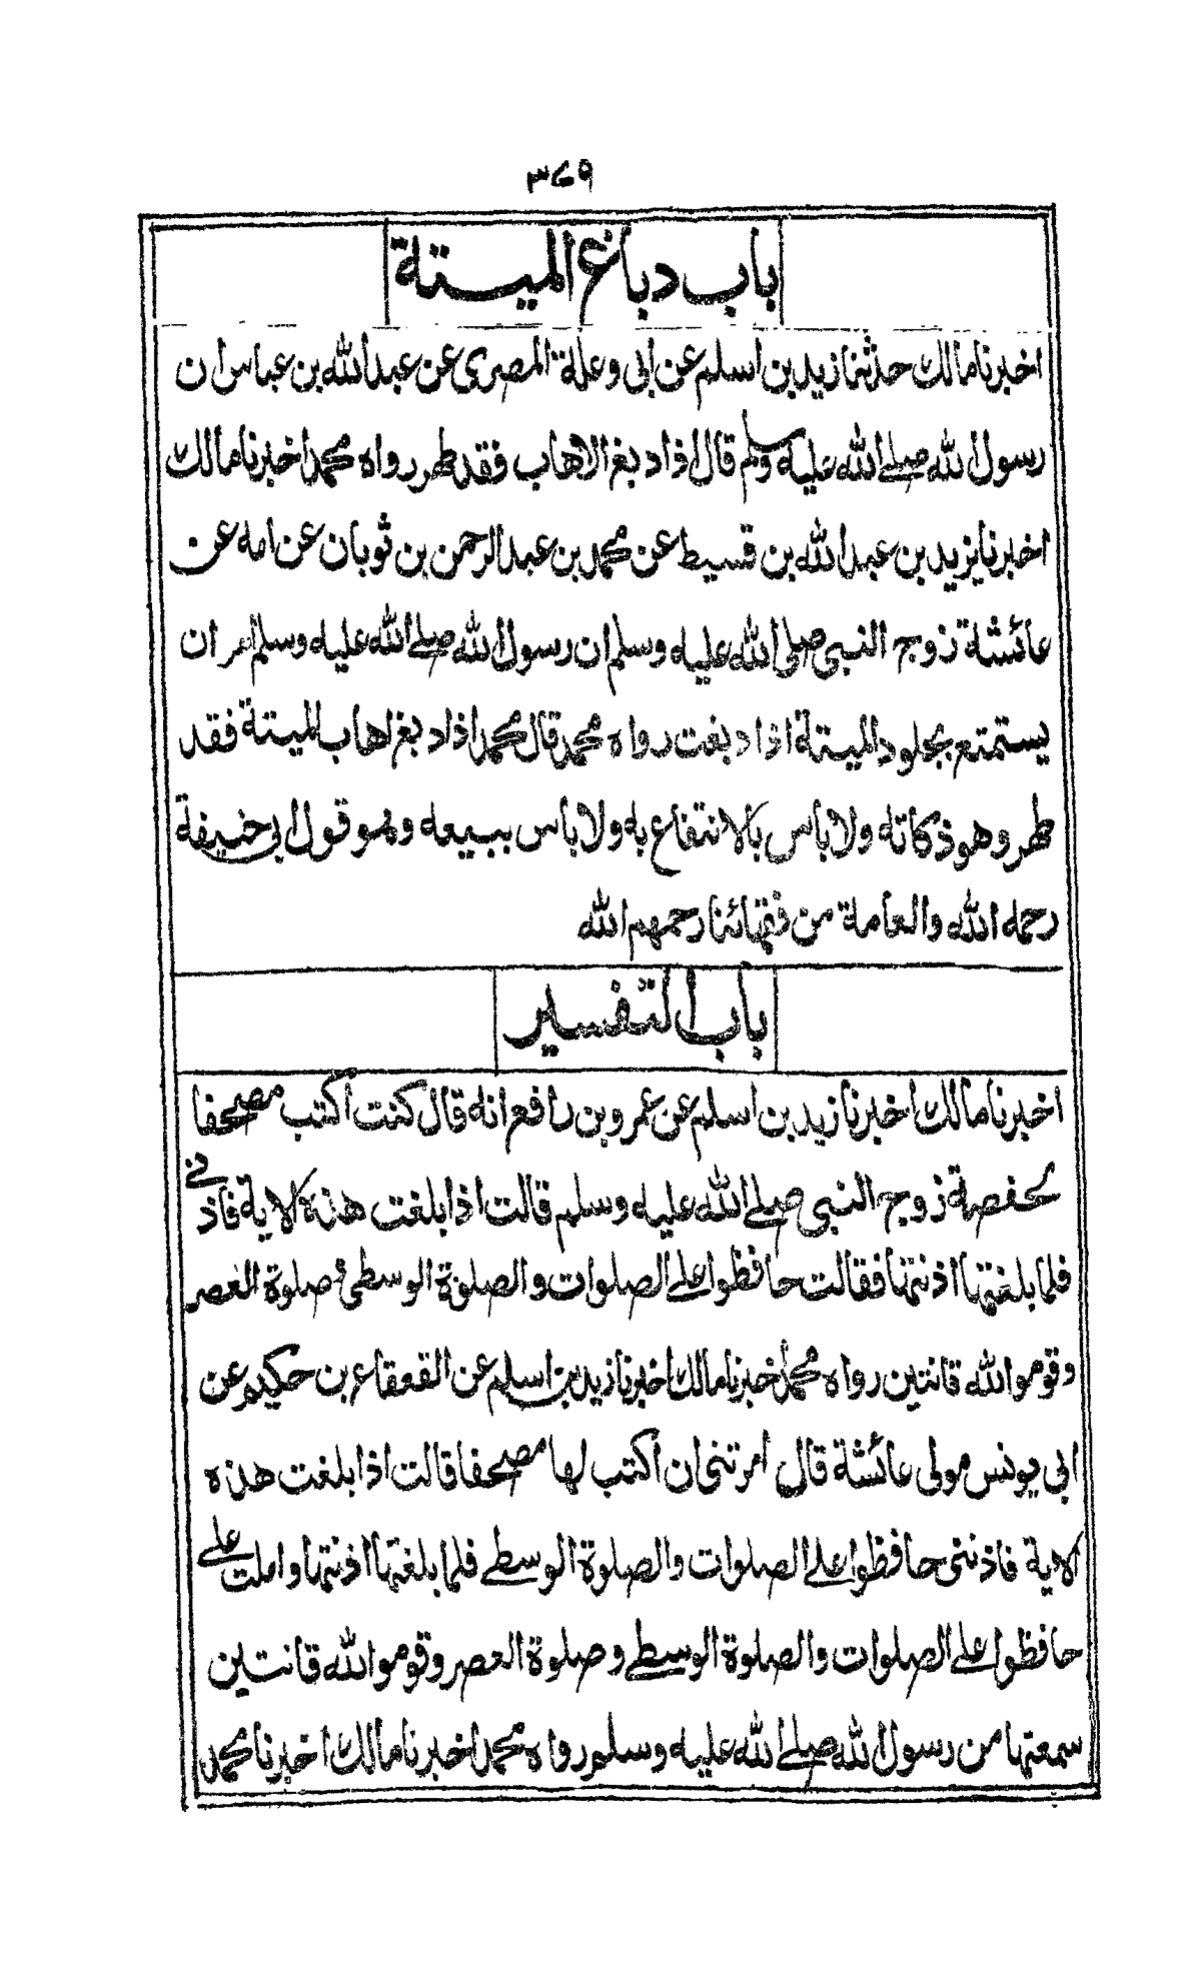 ٣٤٩
باب دباغ الميتة
اخبرنا مالك حدثنا زيد بن اسلم عن ابى وعلة المصرى عن عبد الله بن عباس ان
رسول الله صلى الله عليه وسلم قال اذا دبغ الاهاب فقد طهر رواه محمد اخبرنا مالك
اخبرنا يزيد بن عبد الله بن قسيط عن محمد بن عبد الرحمن بن ثوبان عن امه عن
عائشة زوج النبى صلى الله عليه وسلم ان رسول الله صلى الله عليه وسلم امر ان
يستمتع بجلود الميتة اذا دبغت رواه محمد قال محمد اذا دبغ اهاب الميتة فقد
طهر وهو ذكاته ولا باس بالانتفاع به ولا باس ببيعه وهو قول ابى حنيفة
رحمه الله والعامة من فقهائنا رحمهم الله
باب التفسير
اخبرنا مالك اخبرنا زيد بن اسلم عن عمرو بن رافع انه قال كنت اكتب مصحفا
لحفصة زوج النبى صلى الله عليه وسلم قالت اذا بلغت هذه الاية فاذنى
فلما بلغتها اذنتها فقالت حافظوا على الصلوات والصلوة الوسطى وصلوة العصر
وقوموا لله قانتين رواه محمد اخبرنا مالك اخبرنا زيد بن اسلم عن القعقاع بن حكيم عن
ابى يونس مولى عائشة قال امرتنى ان اكتب لها مصحفا قالت اذا بلغت هذه
الاية فاذننى حافظوا على الصلوات والصلوة الوسطى فلما بلغتها اذنتها واملت على
حافظوا على الصلوات والصلوة الوسطى وصلوة العصر وقوموا لله قانتين
سمعتها من رسول الله صلى الله عليه وسلم رواه محمد اخبرنا مالك اخبرنا محمد